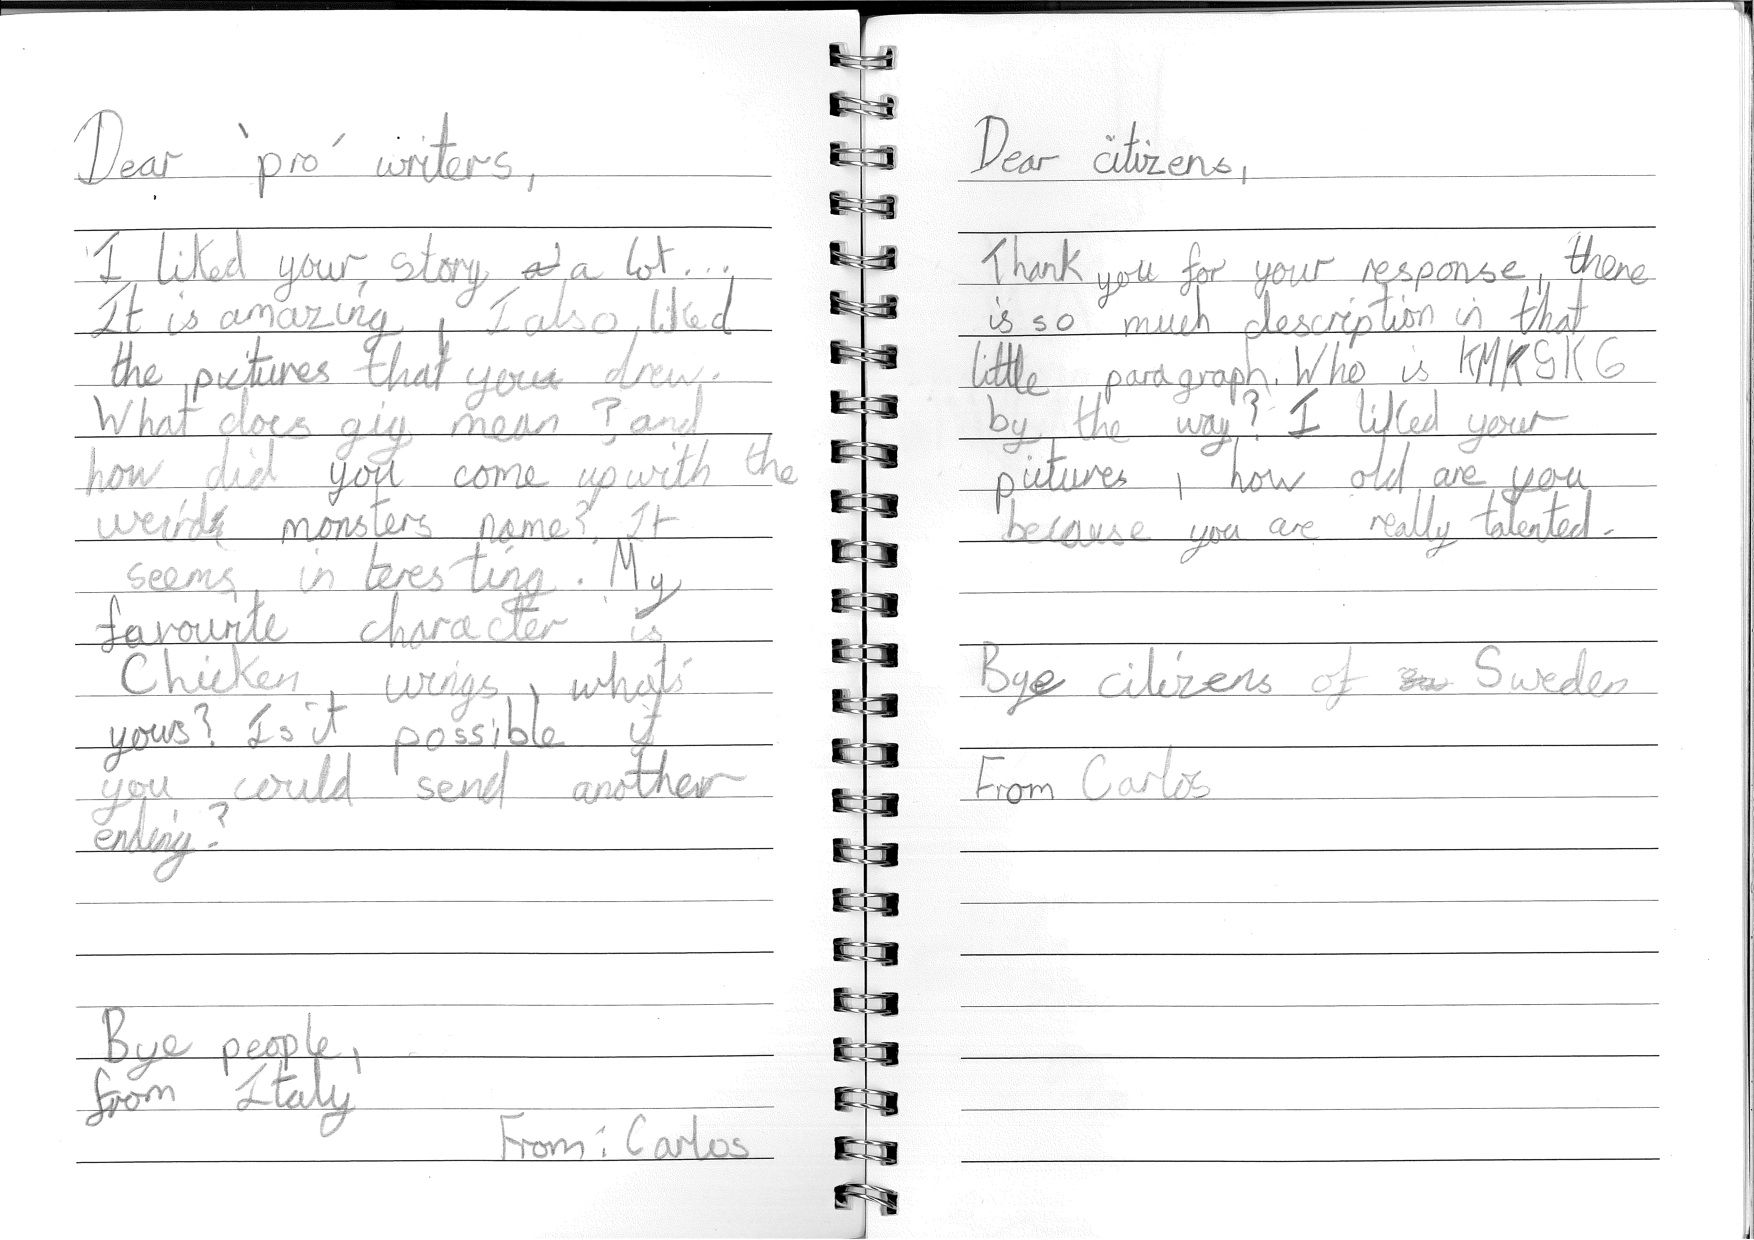 Dear 'pro' writers,
I liked your story a lot...
It is amazing, I also liked
the pictures that you drew.
What does gig mean? and
how did you come up with the
weird monsters name? It
seems in teresting. My
favourite character is
Chicken wings, what's
yours? Is it possible if
you could send another
ending?
Bye people,
from Italy
From: Carlos
Dear citizens,
Thank you for your response, there
is so much description in that
little paragraph. Who is KMKSKG
by the way? I liked your
pictures, how old are you
because you are really talented.
Bye citizens of Sweden
From Carlos